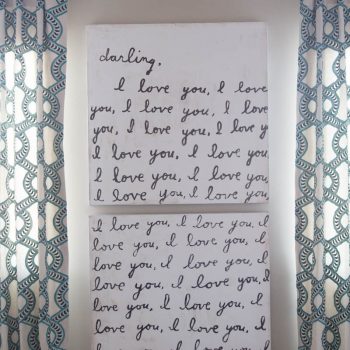 darling,
I love you, I love
you, I love you, I love
you, I love you, I love y
I love you, I love you,
I love you, I love you,
I love you, I love you,
I love you, I love you, I
love you, I love you, I
love you, I love you, I
love you, I love you, I
love you, I love you, I
love you, I love you, I
love you, I love you, I